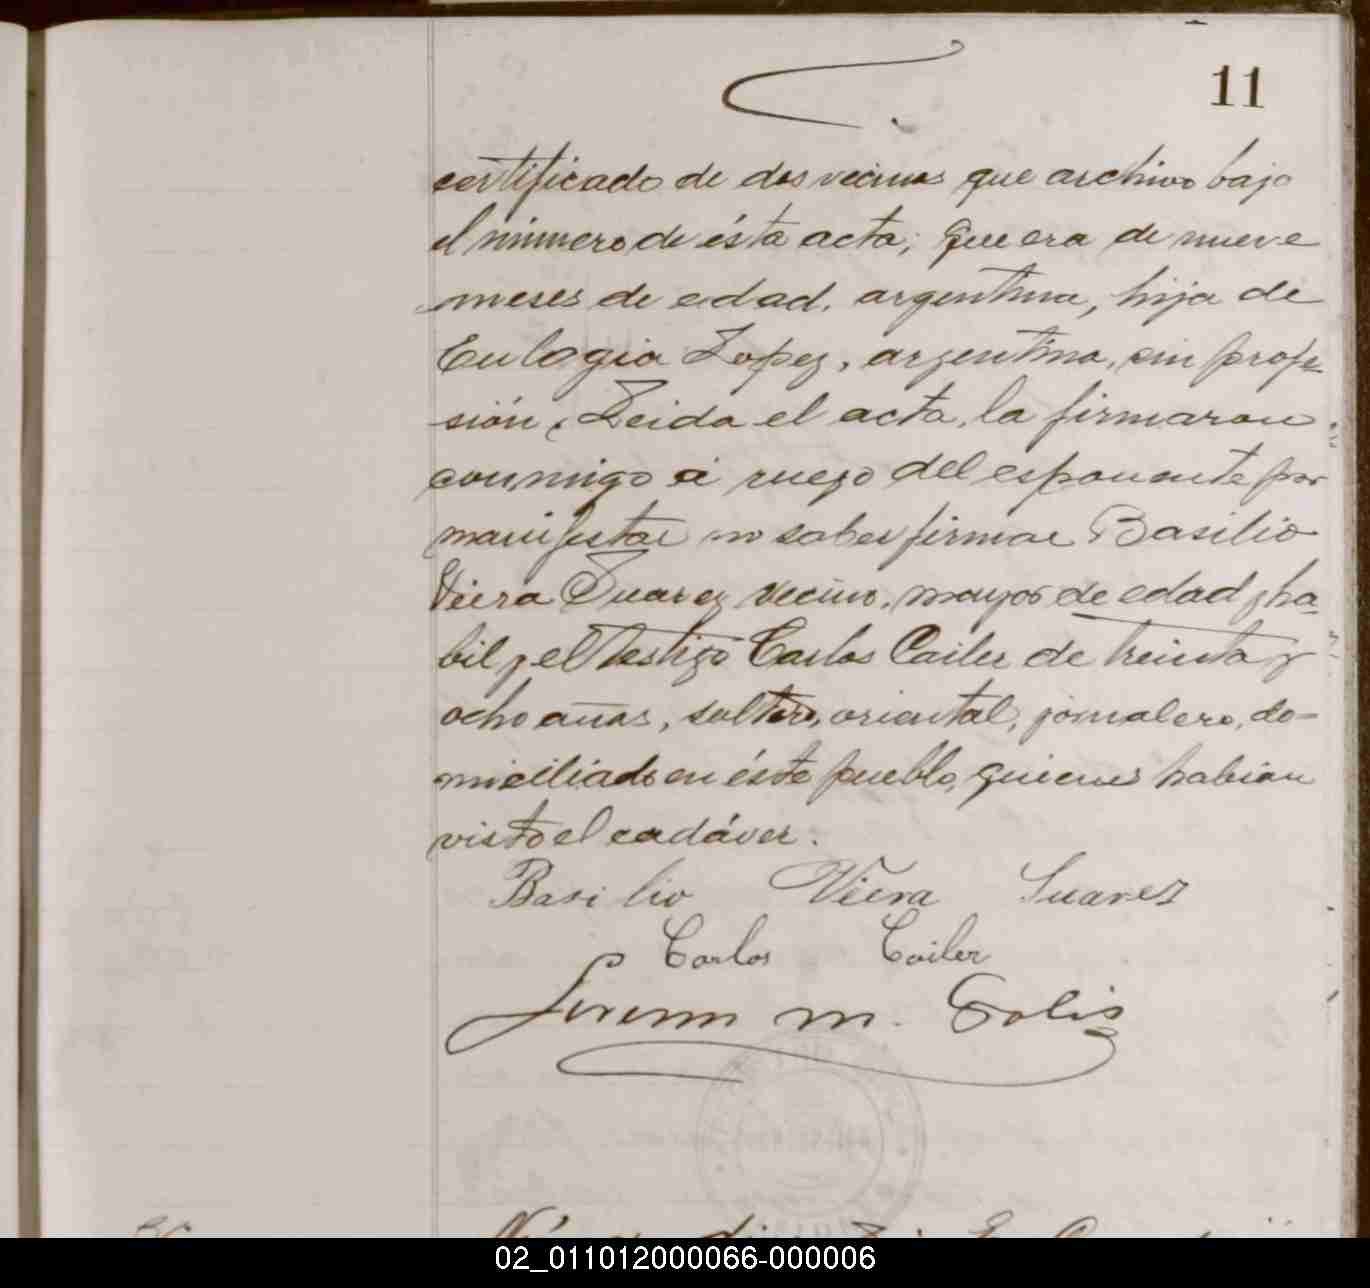 11
certificado de dos vecinos que archivo bajo
el número de ésta acta; que era de nueve
meses de edad, argentina, hija de
Eulogia Lopez, argentina, sin profe-
sión. Leida el acta, la firmaron
conmigo á ruego del esponente por
manifestar no saber firmar Basilio
Viera Suarez vecino, mayor de edad y ha-
bil y el testigo Carlos Cailer de treinta y
ocho años, soltero, oriental, jornalero, do-
miciliado en éste pueblo, quienes habian
visto el cadáver.
Basilio Viera Suarez
Carlos Cailer
m. Solis
02_011012000066-000006